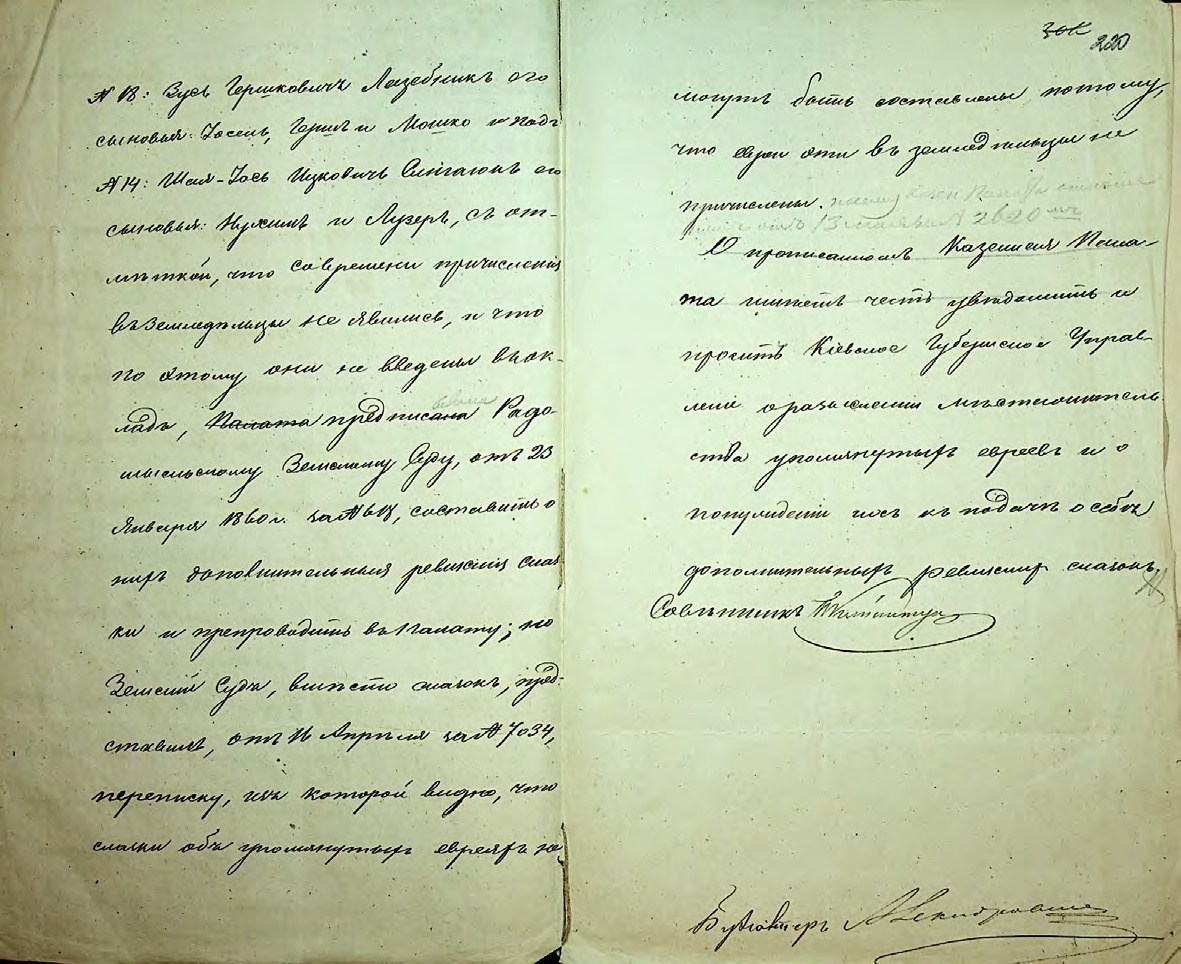 № 13: Зусь Гершковичъ Лазебникъ его
сыновья: Іосель, Гершъ и Мошко и подъ
№ 14: Шая-Іось Ицковичъ его
сыновья: Нухимъ и Лузеръ, съ от-
мѣткой, что современи причисленія
въ земледѣльцы не явились, и что
по этому они не введены въ ок-
ладъ, Палата предписала Радо-
мысльскому Земскому Суду, отъ 23
Января 1860 г. за № 613, составить о
нихъ дополнительныя ревизскія сказ-
ки и препроводить въ Палату; но
Земскій Судъ, вмѣсто сказокъ, пред-
ставилъ, отъ 16 Апрѣля за № 7034,
переписку, изъ которой видно, что
сказки объ упомянутыхъ евреяхъ не
220
могутъ быть составлены потому,
что евреи эти въ земледѣльцы не
причислены.
13 2620
О прописанномъ Казенная Пала-
та имѣетъ честь увѣдомить и
просить Кіевское Губернское Управ-
леніе о розысканіи мѣстожитель-
ства упомянутыхъ евреевъ и о
понужденіи ихъ къ подачѣ о себѣ
дополнительныхъ ревизскихъ сказокъ.
Совѣтникъ
Бухгалтеръ